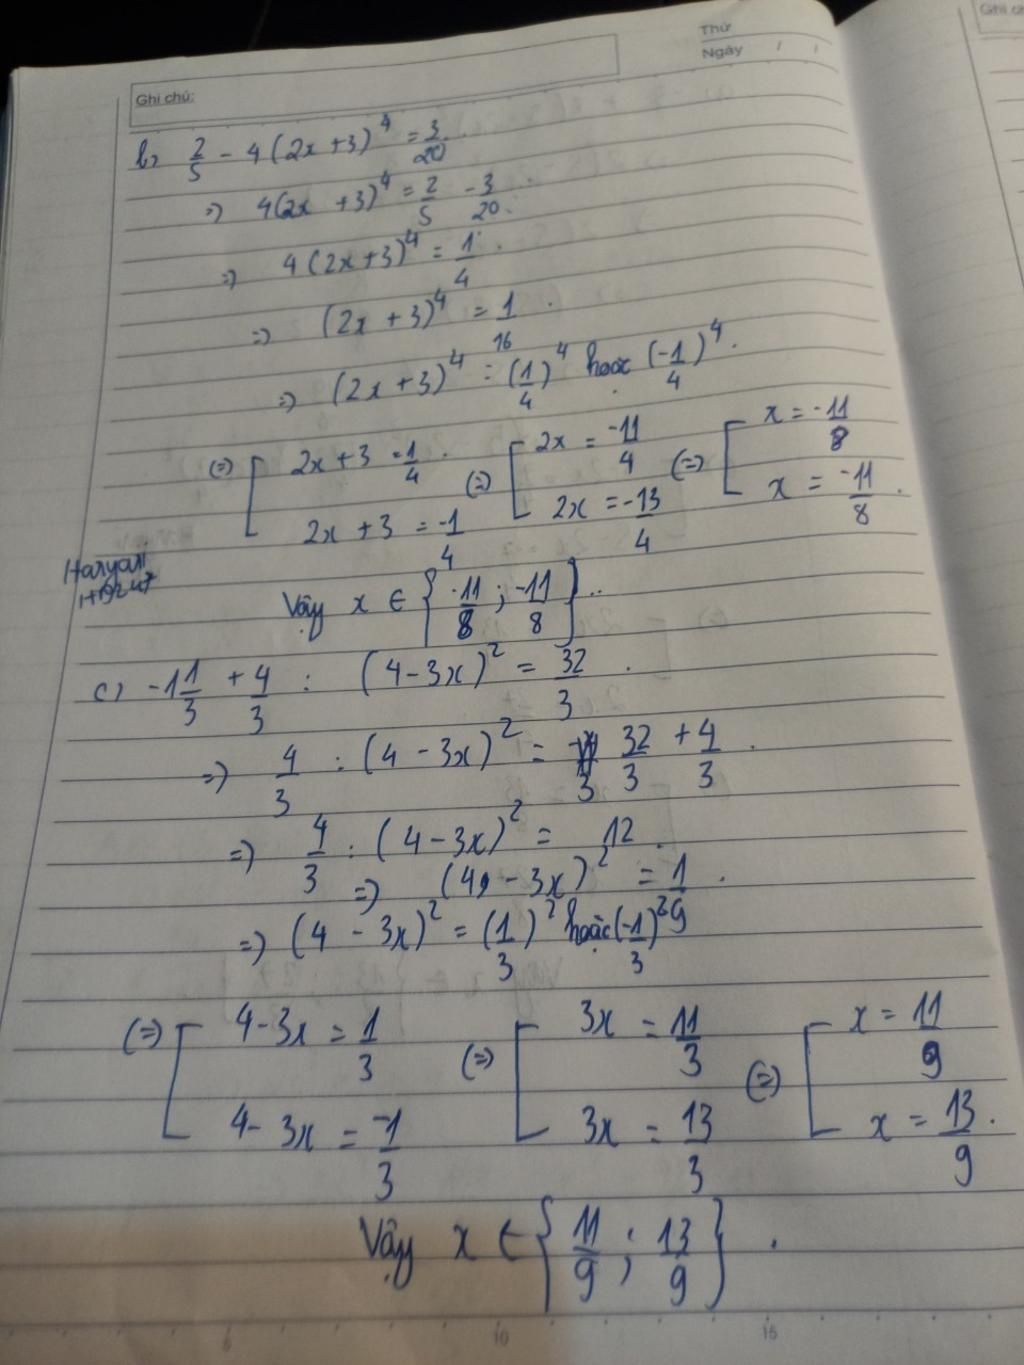 Thứ
Ngày / /
Ghi chú:
b, 2/5 - 4(2x+3)^4 = 3/20.
=> 4(2x +3)^4 = 2/5 - 3/20.
=> 4(2x+3)^4 = 1/4.
=> (2x+3)^4 = 1/16.
=> (2x+3)^4 = (1/4)^4 hoặc (-1/4)^4.
(=) [ 2x+3 = 1/4. (=) [ 2x = -11/4 (=) [ x = -11/8
2x+3 = -1/4 2x = -13/4 x = -11/8.
Vậy x ∈ { -11/8 ; -11/8 }..
c, -1 1/3 + 4/3 : (4-3x)^2 = 32/3.
=> 4/3 : (4-3x)^2 = 32/3 + 4/3.
=> 4/3 : (4-3x)^2 = 12.
=> (4-3x)^2 = 1/9.
=> (4-3x)^2 = (1/3)^2 hoặc (-1/3)^2
(=) [ 4-3x = 1/3 (=) [ 3x = 11/3 (=) [ x = 11/9
4-3x = -1/3 3x = 13/3 x = 13/9.
Vậy x ∈ { 11/9 ; 13/9 }.
5 10 15